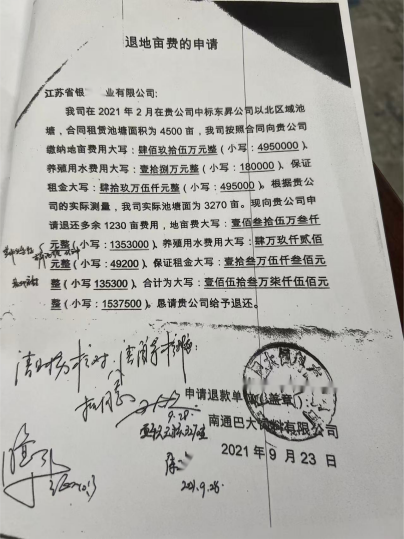 退地亩费的申请
江苏省银 业有限公司:
我司在 2021 年 2 月在贵公司中标东昇公司以北区域池
塘，合同租赁池塘面积为 4500 亩，我司按照合同向贵公司
缴纳地亩费用大写：肆佰玖拾伍万元整（小写：4950000），
养殖用水费用大写：壹拾捌万元整（小写：180000）、保证
租金大写：肆拾玖万伍仟元整（小写：495000）。根据贵公
司的实际测量，我司实际池塘面为 3270 亩。现向贵公司申
请退还多余 1230 亩费用，地亩费大写：壹佰叁拾伍万叁仟
元整（小写：1353000）、养殖用水费大写：肆万玖仟贰佰
元整（小写：49200）、保证租金大写：壹拾叁万伍仟叁佰元
整（小写：135300）、合计为大写：壹佰伍拾叁万柒仟伍佰元
整（小写：1537500）。恳请贵公司给予退还。
申请退款单位（盖章）：
9.28.
南通巴大饲料有限公司
2021 年 9 月 23 日
2021.9.26